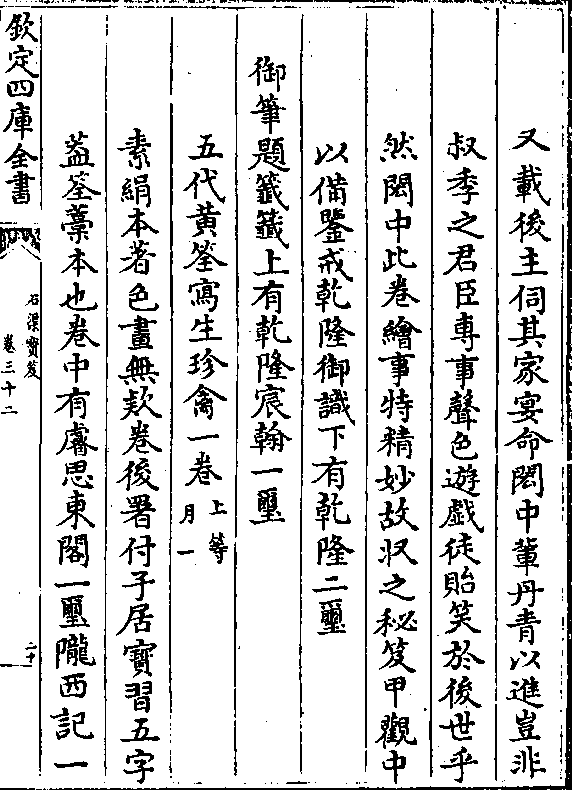 又載後主伺其家宴命閎中輩丹青以進豈非
叔季之君臣專事聲色遊戲徒貽笑於後世乎
然閎中此卷繪事特精妙故収之秘笈甲觀中
以備鑒戒乾隆御識下有乾隆二璽
御筆題籤籤上有乾隆宸翰一璽
五代黃筌寫生珍禽一卷 上等 月一
素絹本著色畫無欵卷後署付子居寶習五字
葢筌藁本也卷中有睿思東閣一璽隴西記一
欽定四庫全書
石渠寶笈
卷三十二
二十